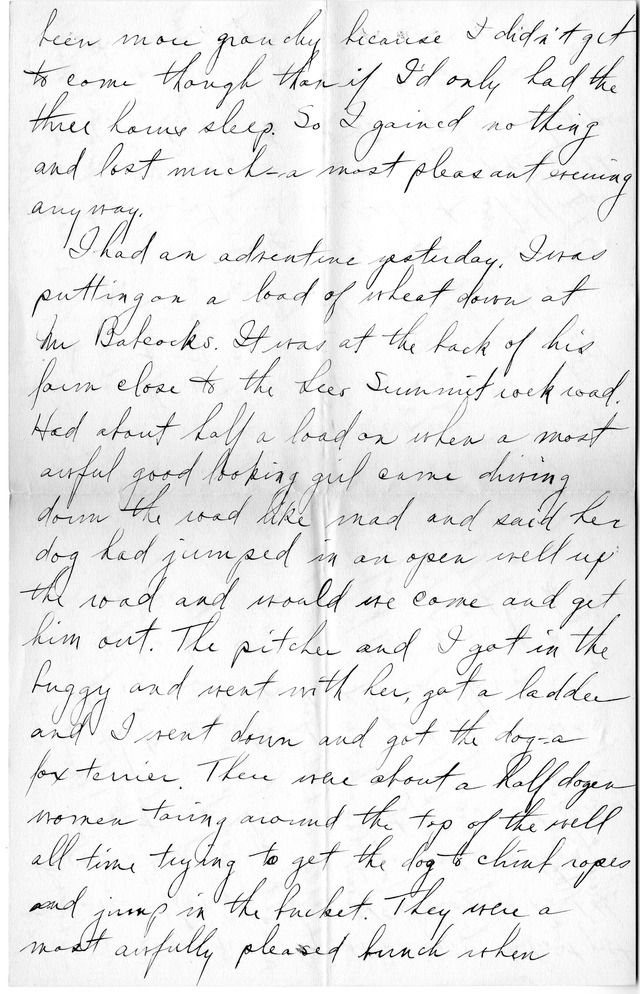 been more grouchy because I didn't get
to come though than if I'd only had the
three hours sleep. So I gained nothing
and lost much - a most pleasant evening
anyway.
I had an adventure yesterday. I was
putting on a load of wheat down at
Mr Babcocks. It was at the back of his
farm close to the Lees Summit rock road.
Had about half a load on when a most
awful good looking girl came driving
down the road like mad and said her
dog had jumped in an open well up
the road and would we come and get
him out. The pitcher and I got in the
buggy and went with her, got a ladder
and I went down and got the dog - a
fox terrier. There were about a half dozen
women taring around the top of the well
all time trying to get the dog to climb ropes
and jump in the bucket. They were a
most awfully pleased bunch when